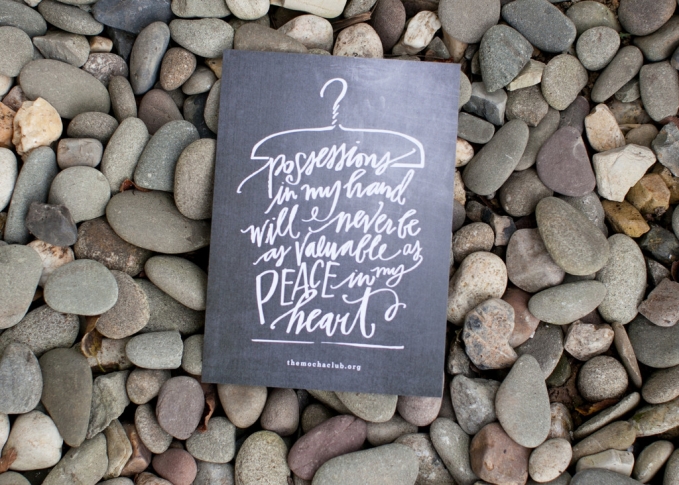 possessions
in my hand
will never be
as valuable as
PEACE in my
heart
themochaclub.org